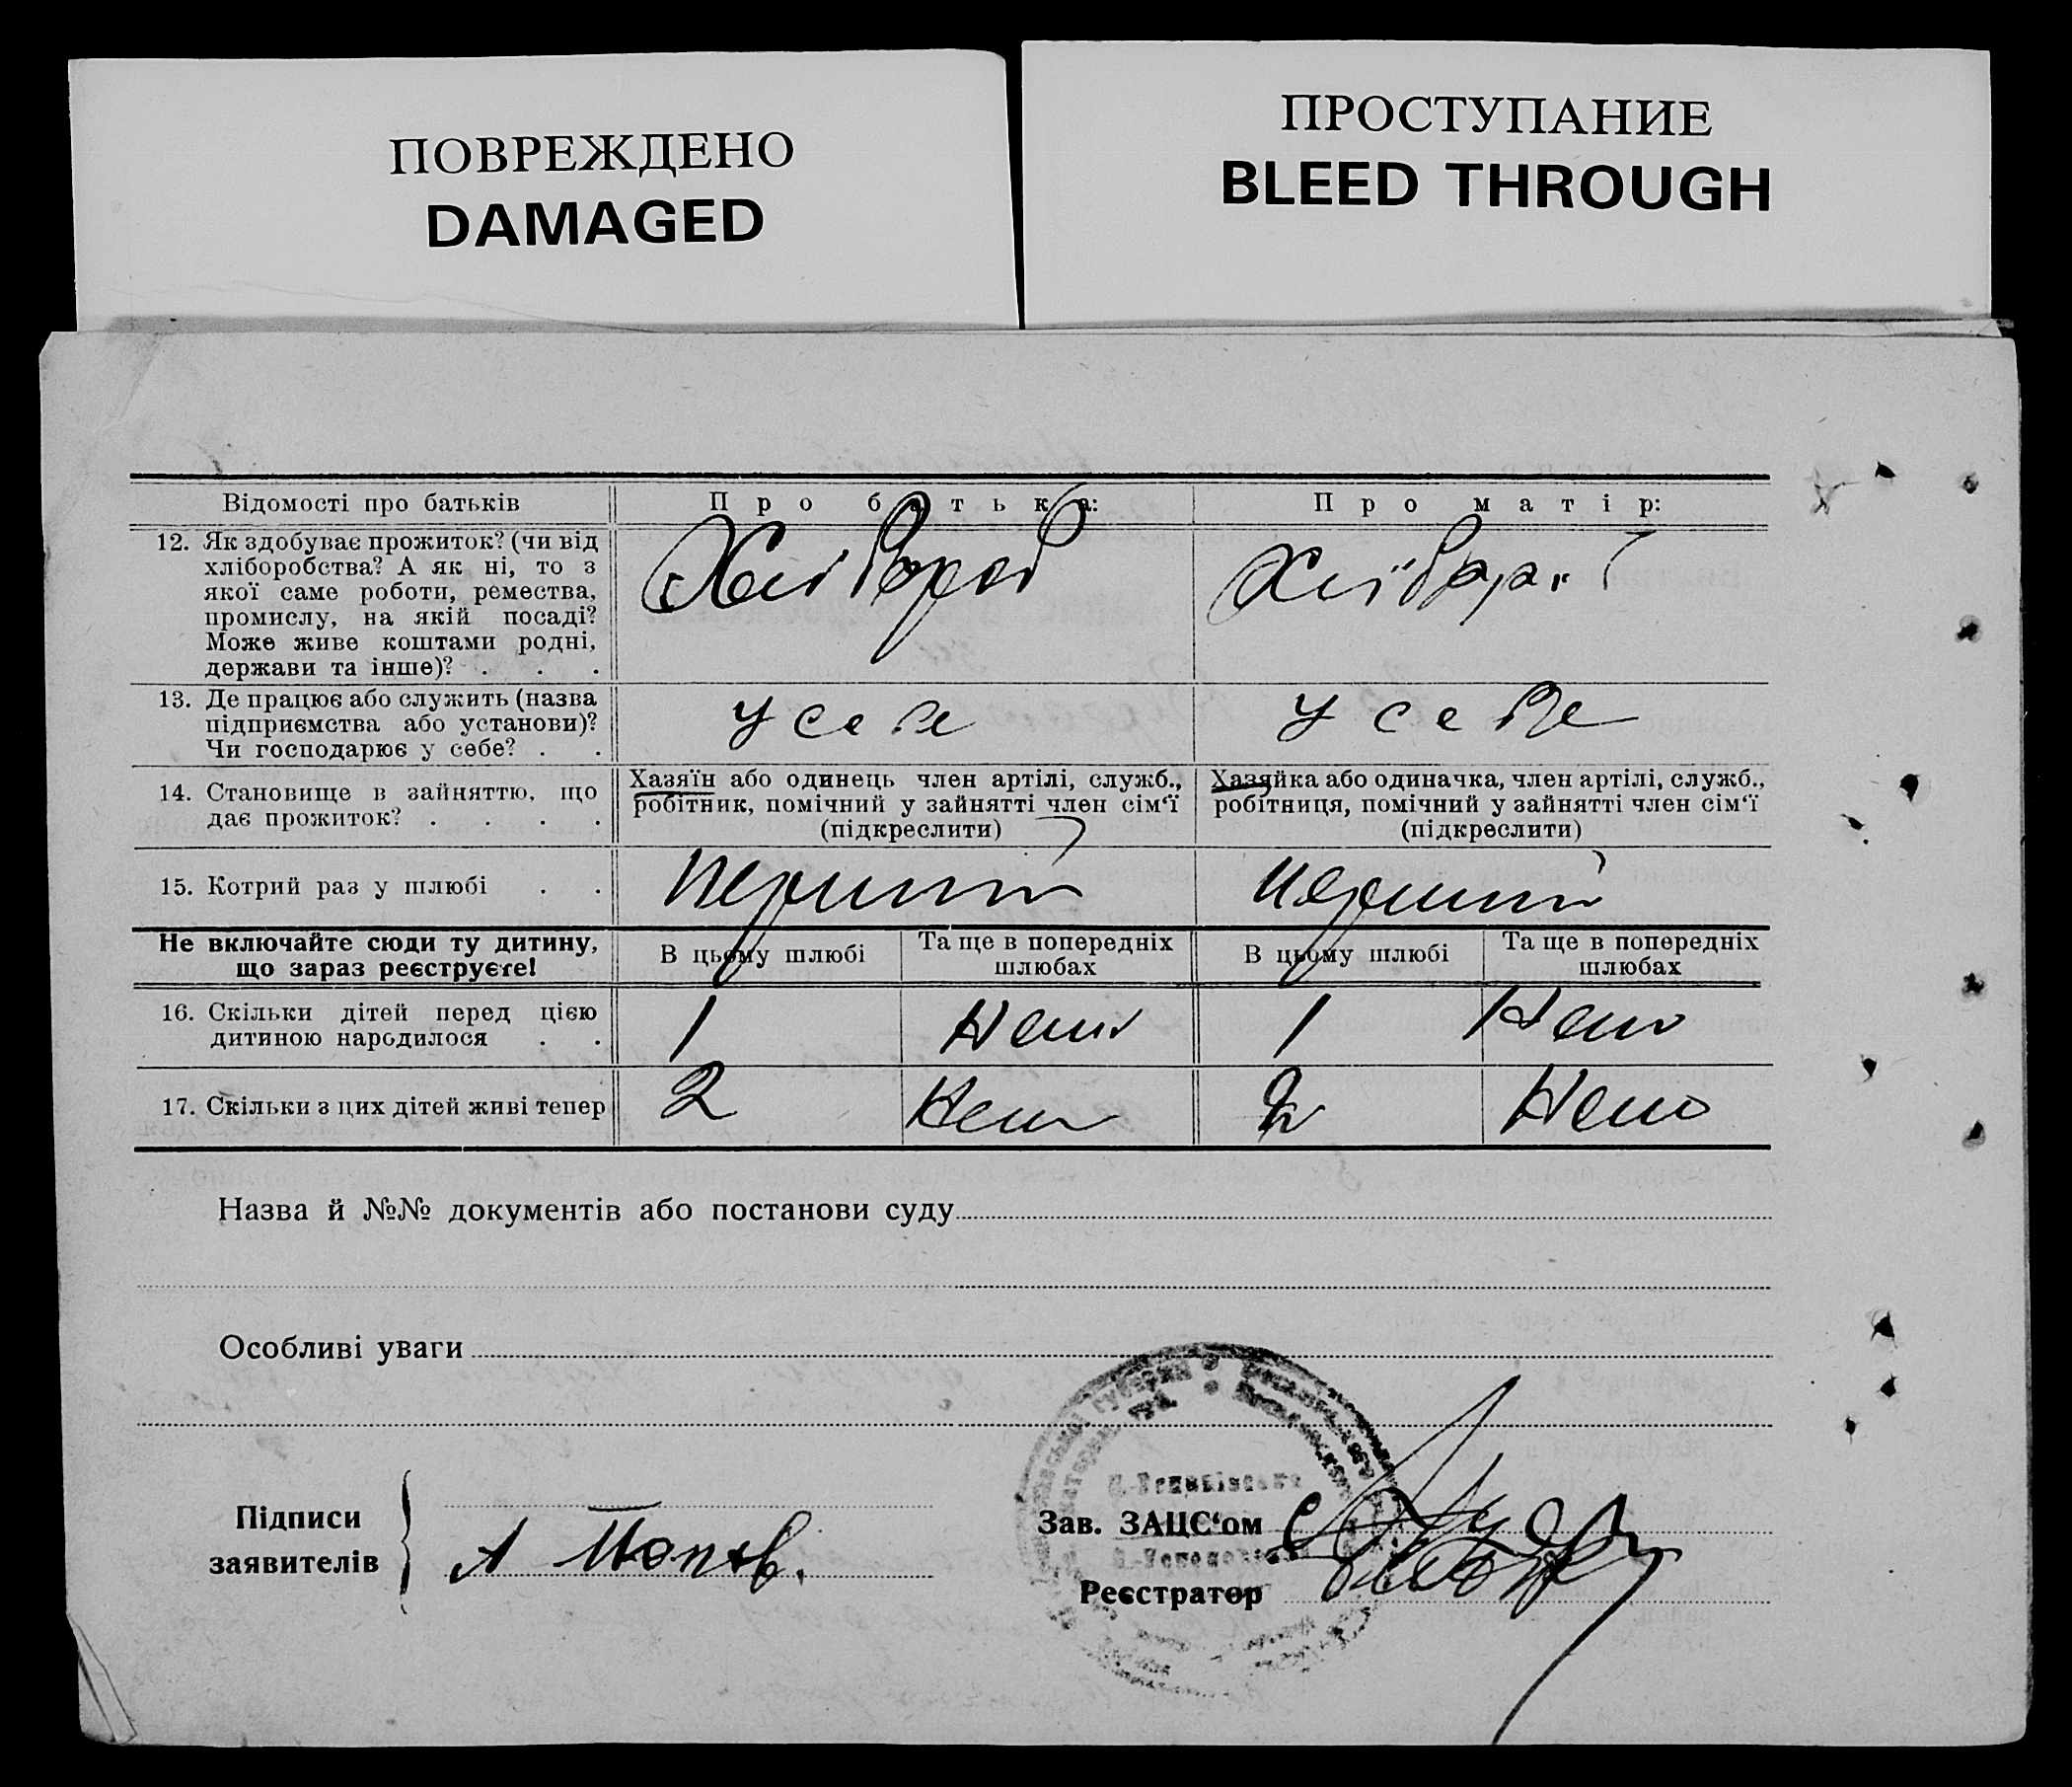 ПОВРЕЖДЕНО
DAMAGED
ПРОСТУПАНИЕ
BLEED THROUGH
Відомості про батьків
Про батька:
Про матір:
12. Як здобуває прожиток? (чи від
хліборобства? А як ні, то з
якої саме роботи, ремества,
промислу, на якій посаді?
Може живе коштами родні,
держави та інше)? . . .
Хлібороб
13. Де працює або служить (назва
підприємства або установи)?
Чи господарює у себе? . .
У себе
У себе
14. Становище в зайняттю, що
дає прожиток? . . . .
Хазяїн або одинець член артілі, служб.,
робітник, помічний у зайнятті член сім‘ї
(підкреслити)
Хазяйка або одиначка, член артілі, служб.,
робітниця, помічний у зайнятті член сім‘ї
(підкреслити)
15. Котрий раз у шлюбі . .
Перший
Перший
Не включайте сюди ту дитину,
що зараз реєструєте!
В цьому шлюбі
Та ще в попередніх
шлюбах
В цьому шлюбі
Та ще в попередніх
шлюбах
16. Скільки дітей перед цією
дитиною народилося . .
1
1
17. Скільки з цих дітей живі тепер
2
2
Назва й №№ документів або постанови суду
Особливі уваги
Підписи
заявителів
А Попов.
Зав. ЗАЦС‘ом
Реєстратор